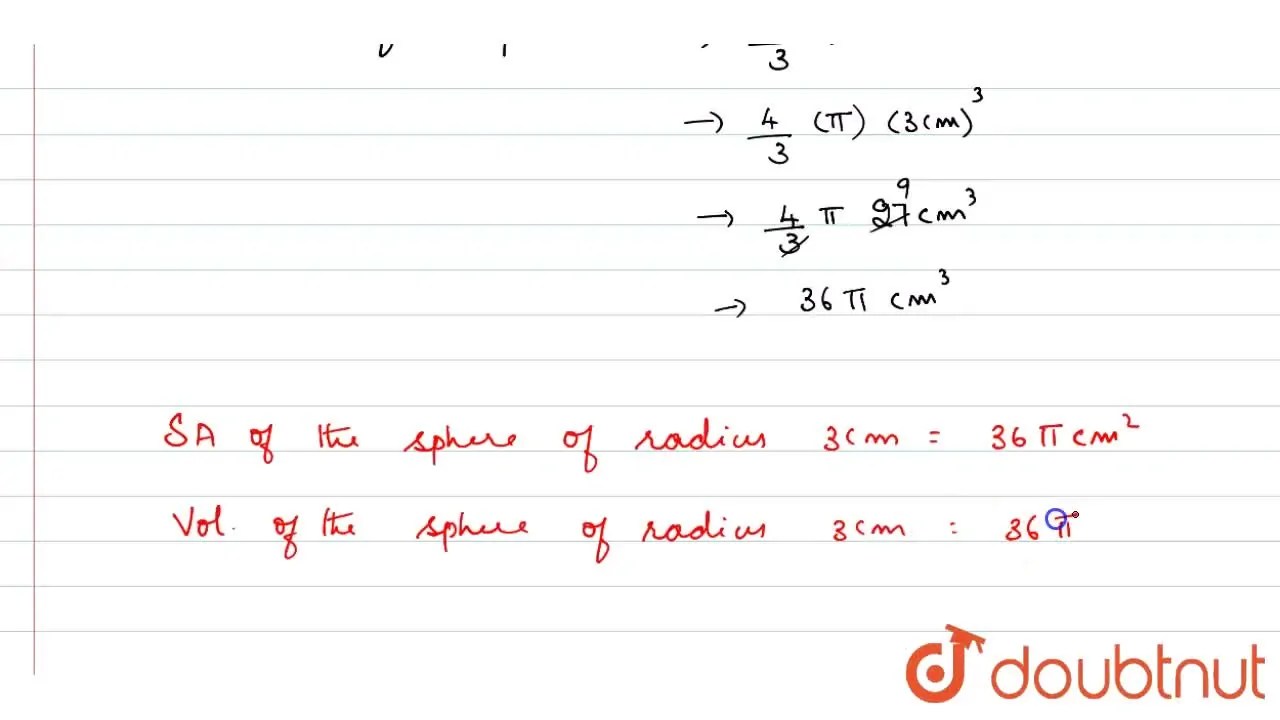 3
→ 4/3 (π) (3cm)³
→ 4/3 π 27 9 cm³
→ 36 π cm³
SA of the sphere of radius 3cm = 36 π cm²
Vol. of the sphere of radius 3cm = 36 π
doubtnut